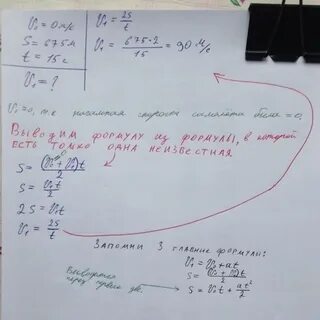 V₀ = 0 м/с
S = 675 м
t = 15 с
V₁ = ?
V₁ = 2S/t
V₁ = 675·2/15 = 90 м/с
V₀ = 0, т.к начальная скорость самолёта была = 0,
Выводим формулу из формулы, в которой
есть только одна неизвестная
S = (V₀ + V₁)t/2
S = V₁t/2
2S = V₁t
V₁ = 2S/t
Запомни 3 главные формулы:
V₁ = V₀ + at
S = (V₀ + V₁)t/2
S = V₀t + at²/2
Выводятся
через первые две.